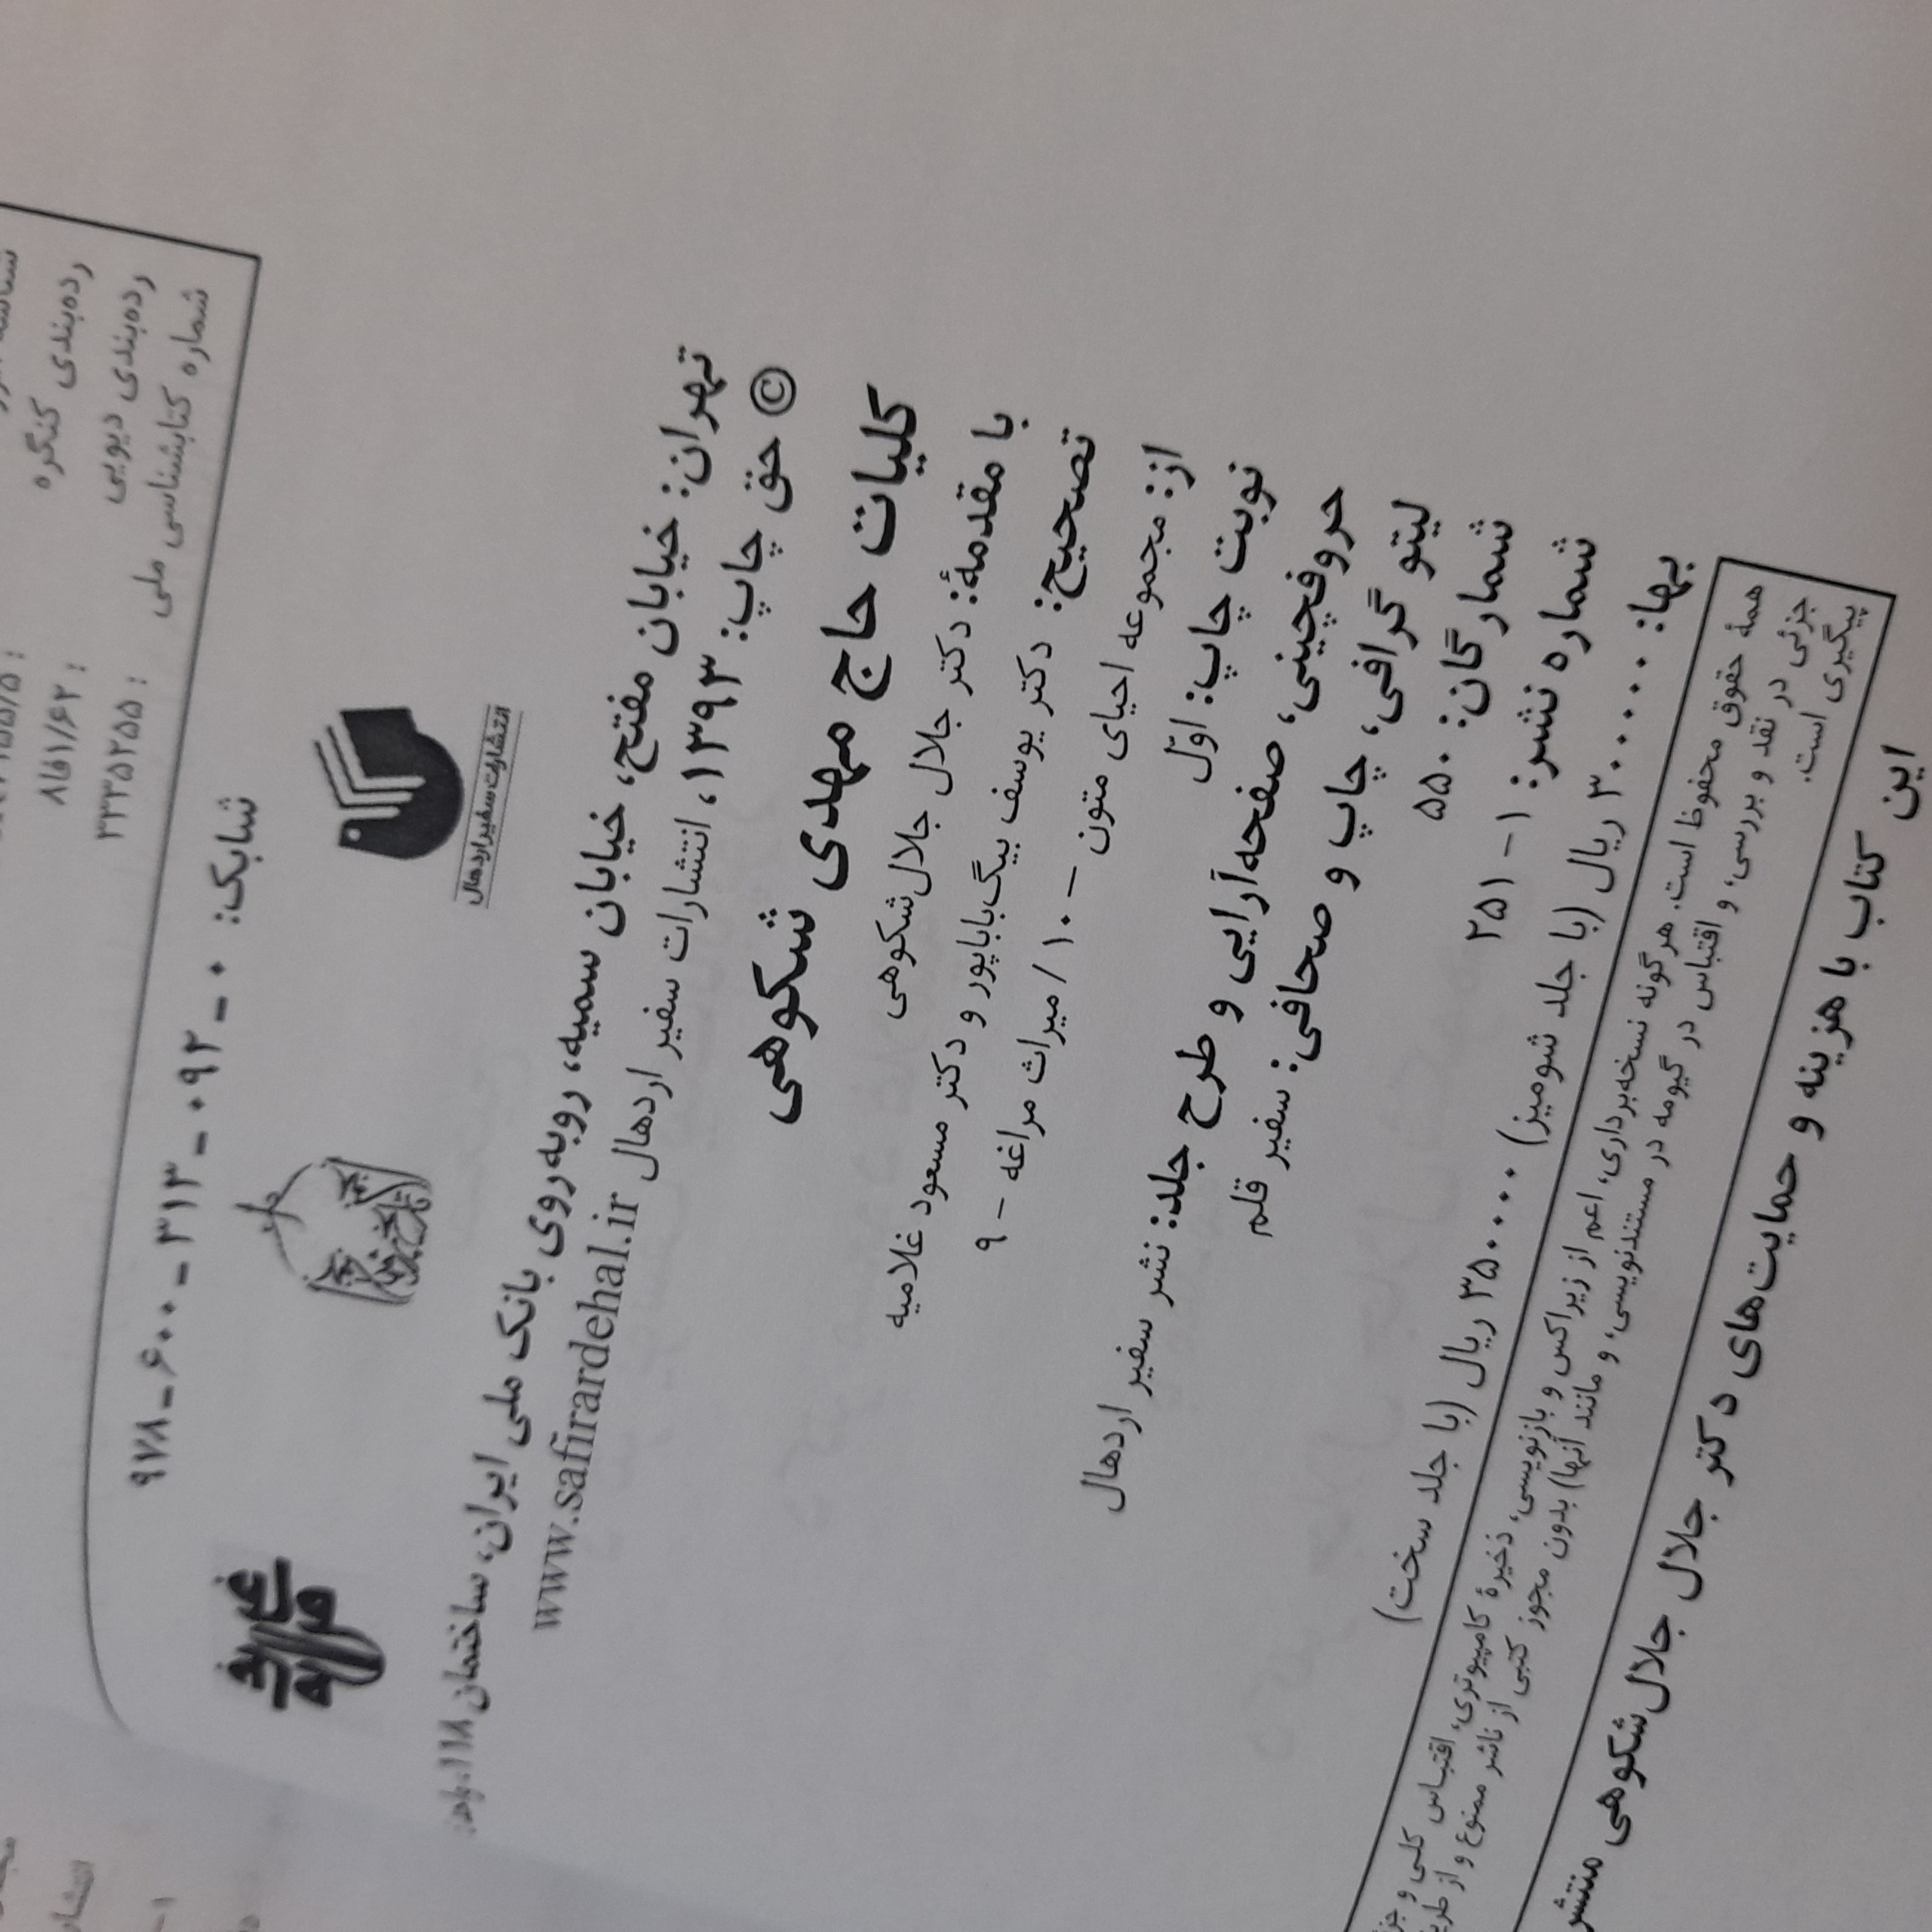 رده‌بندی کنگره
رده‌بندی دیویی : ۸فا۱/۶۲
شماره کتابشناسی ملی : ۳۳۳۵۲۵۵
شابک: ۰ - ۰۹۲ - ۳۱۳ - ۶۰۰ - ۹۷۸
انتشارات سفیر اردهال
تهران: خیابان مفتح، خیابان سمیه، روبه‌روی بانک ملی ایران، ساختمان ۱۱۸،
© حق چاپ: ۱۳۹۳، انتشارات سفیر اردهال www.safirardehal.ir
کلیات حاج مهدی شکوهی
با مقدمهٔ: دکتر جلال جلال‌شکوهی
تصحیح: دکتر یوسف بیگ‌باباپور و دکتر مسعود غلامیه
از: مجموعه احیای متون – ۱۰ / میراث مراغه – ۹
نوبت چاپ: اوّل
حروفچینی، صفحه‌آرایی و طرح جلد: نشر سفیر اردهال
لیتوگرافی، چاپ و صحافی: سفیر قلم
شمارگان: ۵۵۰
شماره نشر: ۱ - ۲۵۱
بها: ۳۰۰۰۰۰ ریال (با جلد شومیز) ۳۵۰۰۰۰ ریال (با جلد سخت)
همهٔ حقوق محفوظ است. هرگونه نسخه‌برداری، اعم از زیراکس و بازنویسی، ذخیرهٔ کامپیوتری، اقتباس کلی و
جزئی در نقد و بررسی، و اقتباس در گیومه در مستندنویسی، و مانند آنها) بدون مجوز کتبی از ناشر ممنوع و از
پیگیری است.
این کتاب با هزینه و حمایت‌های دکتر جلال جلال‌شکوهی منتشر